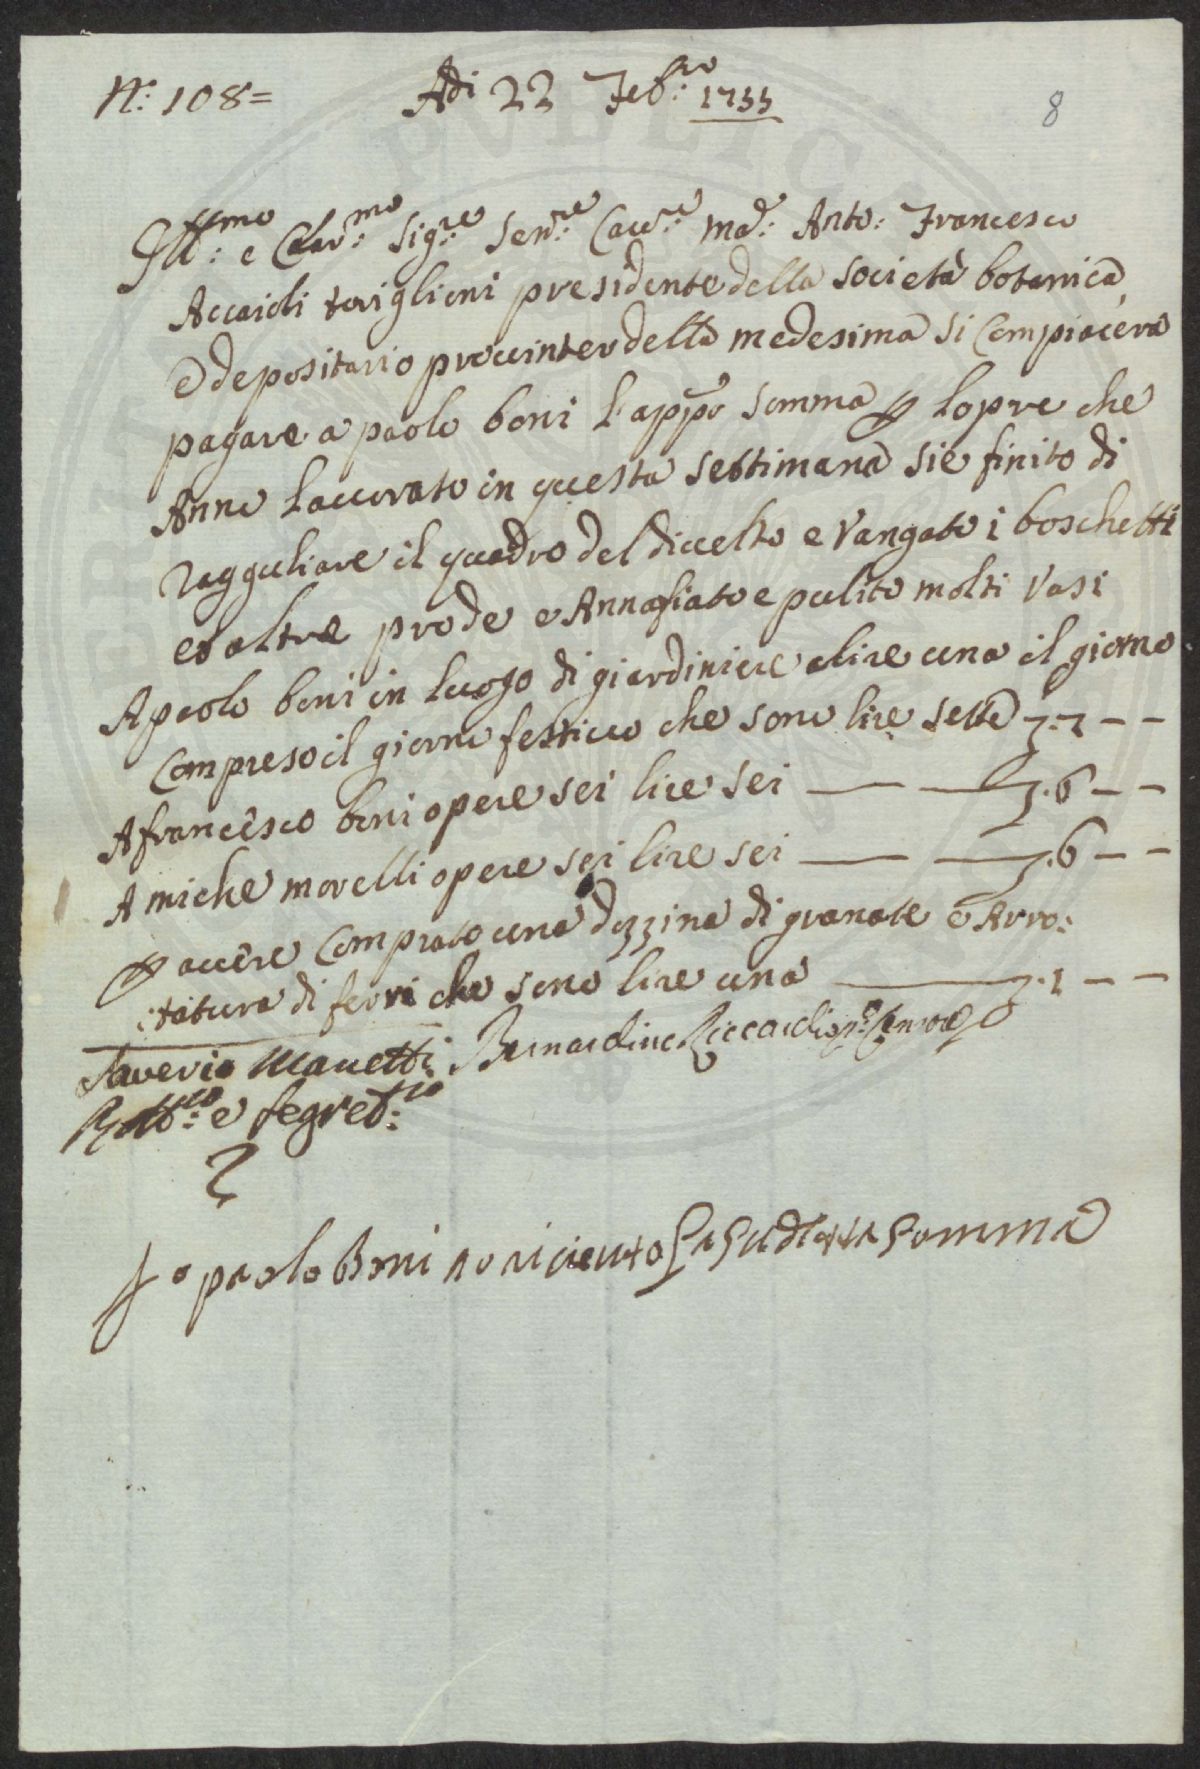 N.: 108=
Adi 22 Feb:ro 1755
8
Ill:mo e Clar:mo Sig:re Sen:re Cav:re Mad.: Anto: Francesco
Accaioli toriglioni presidente della società botanica
e depositario provvinter della medesima si Compiacerà
pagare a paolo boni l'app:o somma p lopre che
Anno lavorato in questa settimana sie finito di
ragguliare il quadro del divelto e Vangato i boschetti
et altre prode e Annafiato e pulito molti Vasi
A paolo boni in luogo di giardiniere a lire una il giorno
Compreso il giorno festivo che sono lire sette 7:7 - -
A francesco boni opere sei lire sei 7.6 - -
A miche morelli opere sei lire sei 7.6 - -
p avere Comprato una dozzina di granate e Arro:
:tatura di ferri che sono lire una 7.1 - -
Saverio Manetti Bernardino Riccardi
e Segret:io
Jo paolo Boni o ricieuto la sudetta somma